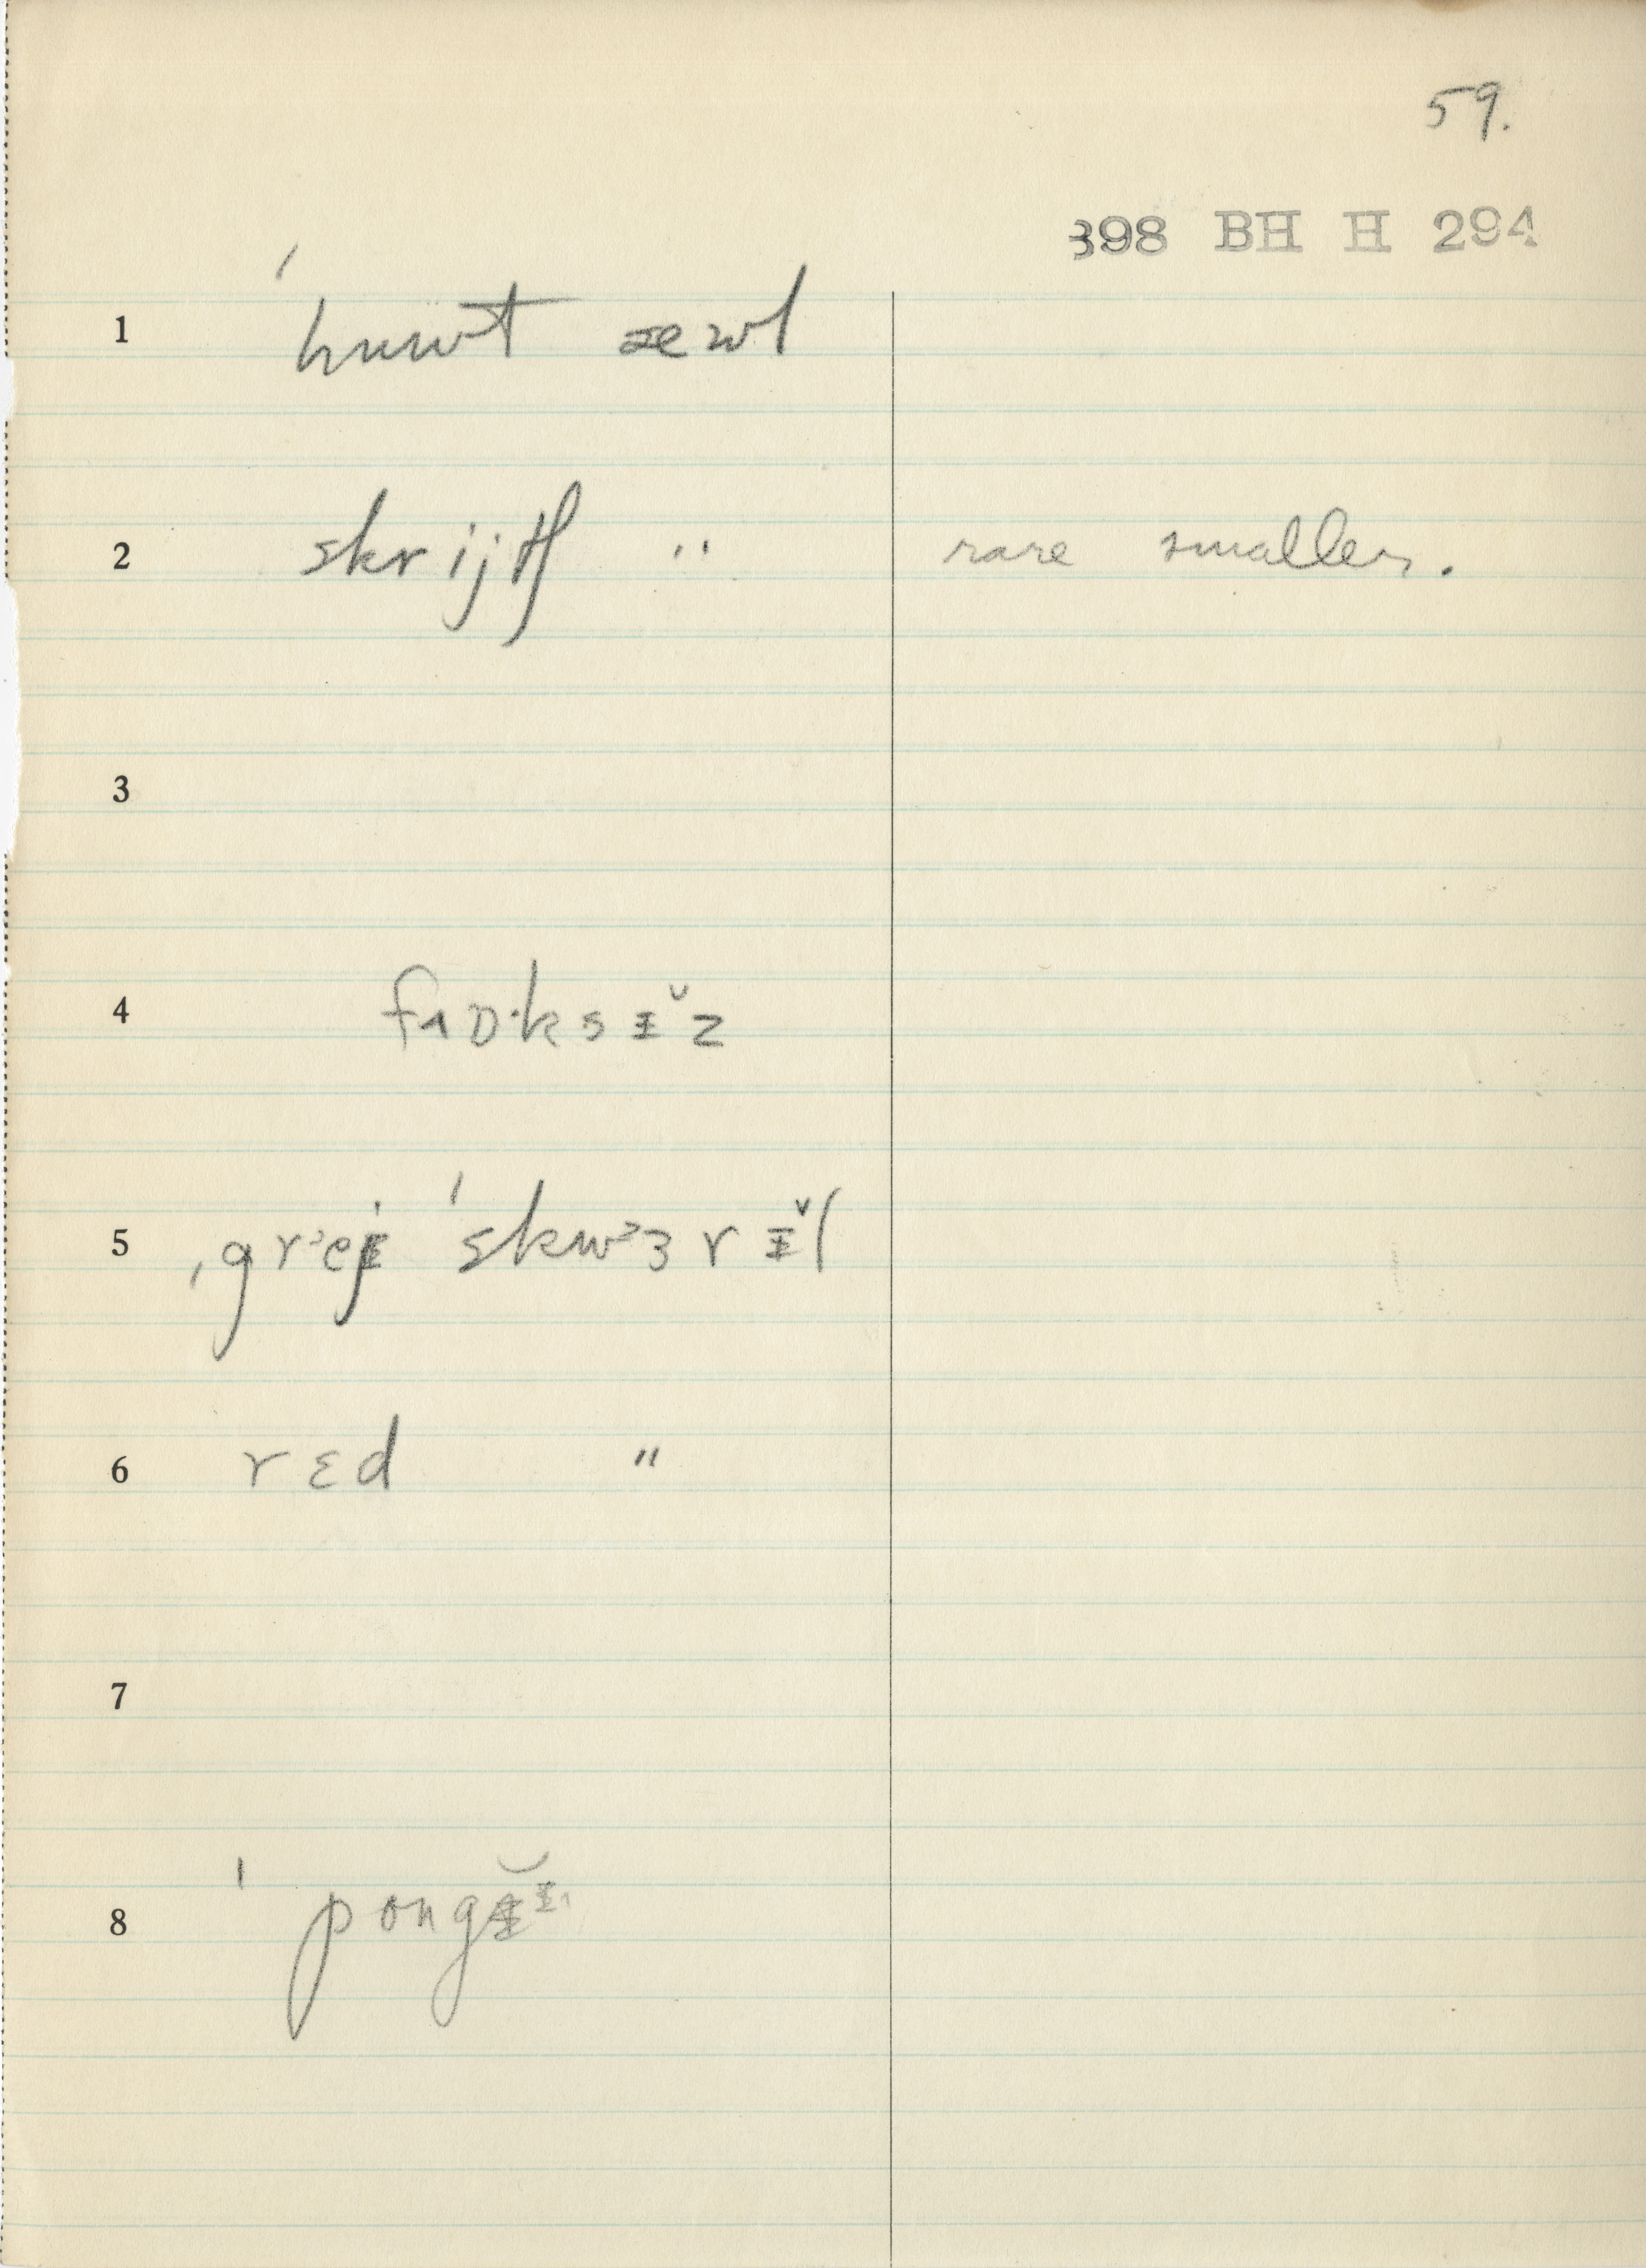 59.
398 BH H 294
1 ˈhuwt æwl
2 skrijtʃ " rare smaller.
3
4
5 ˌgrej ˈskwɜrɪ̆l
6 rɛd "
7
8